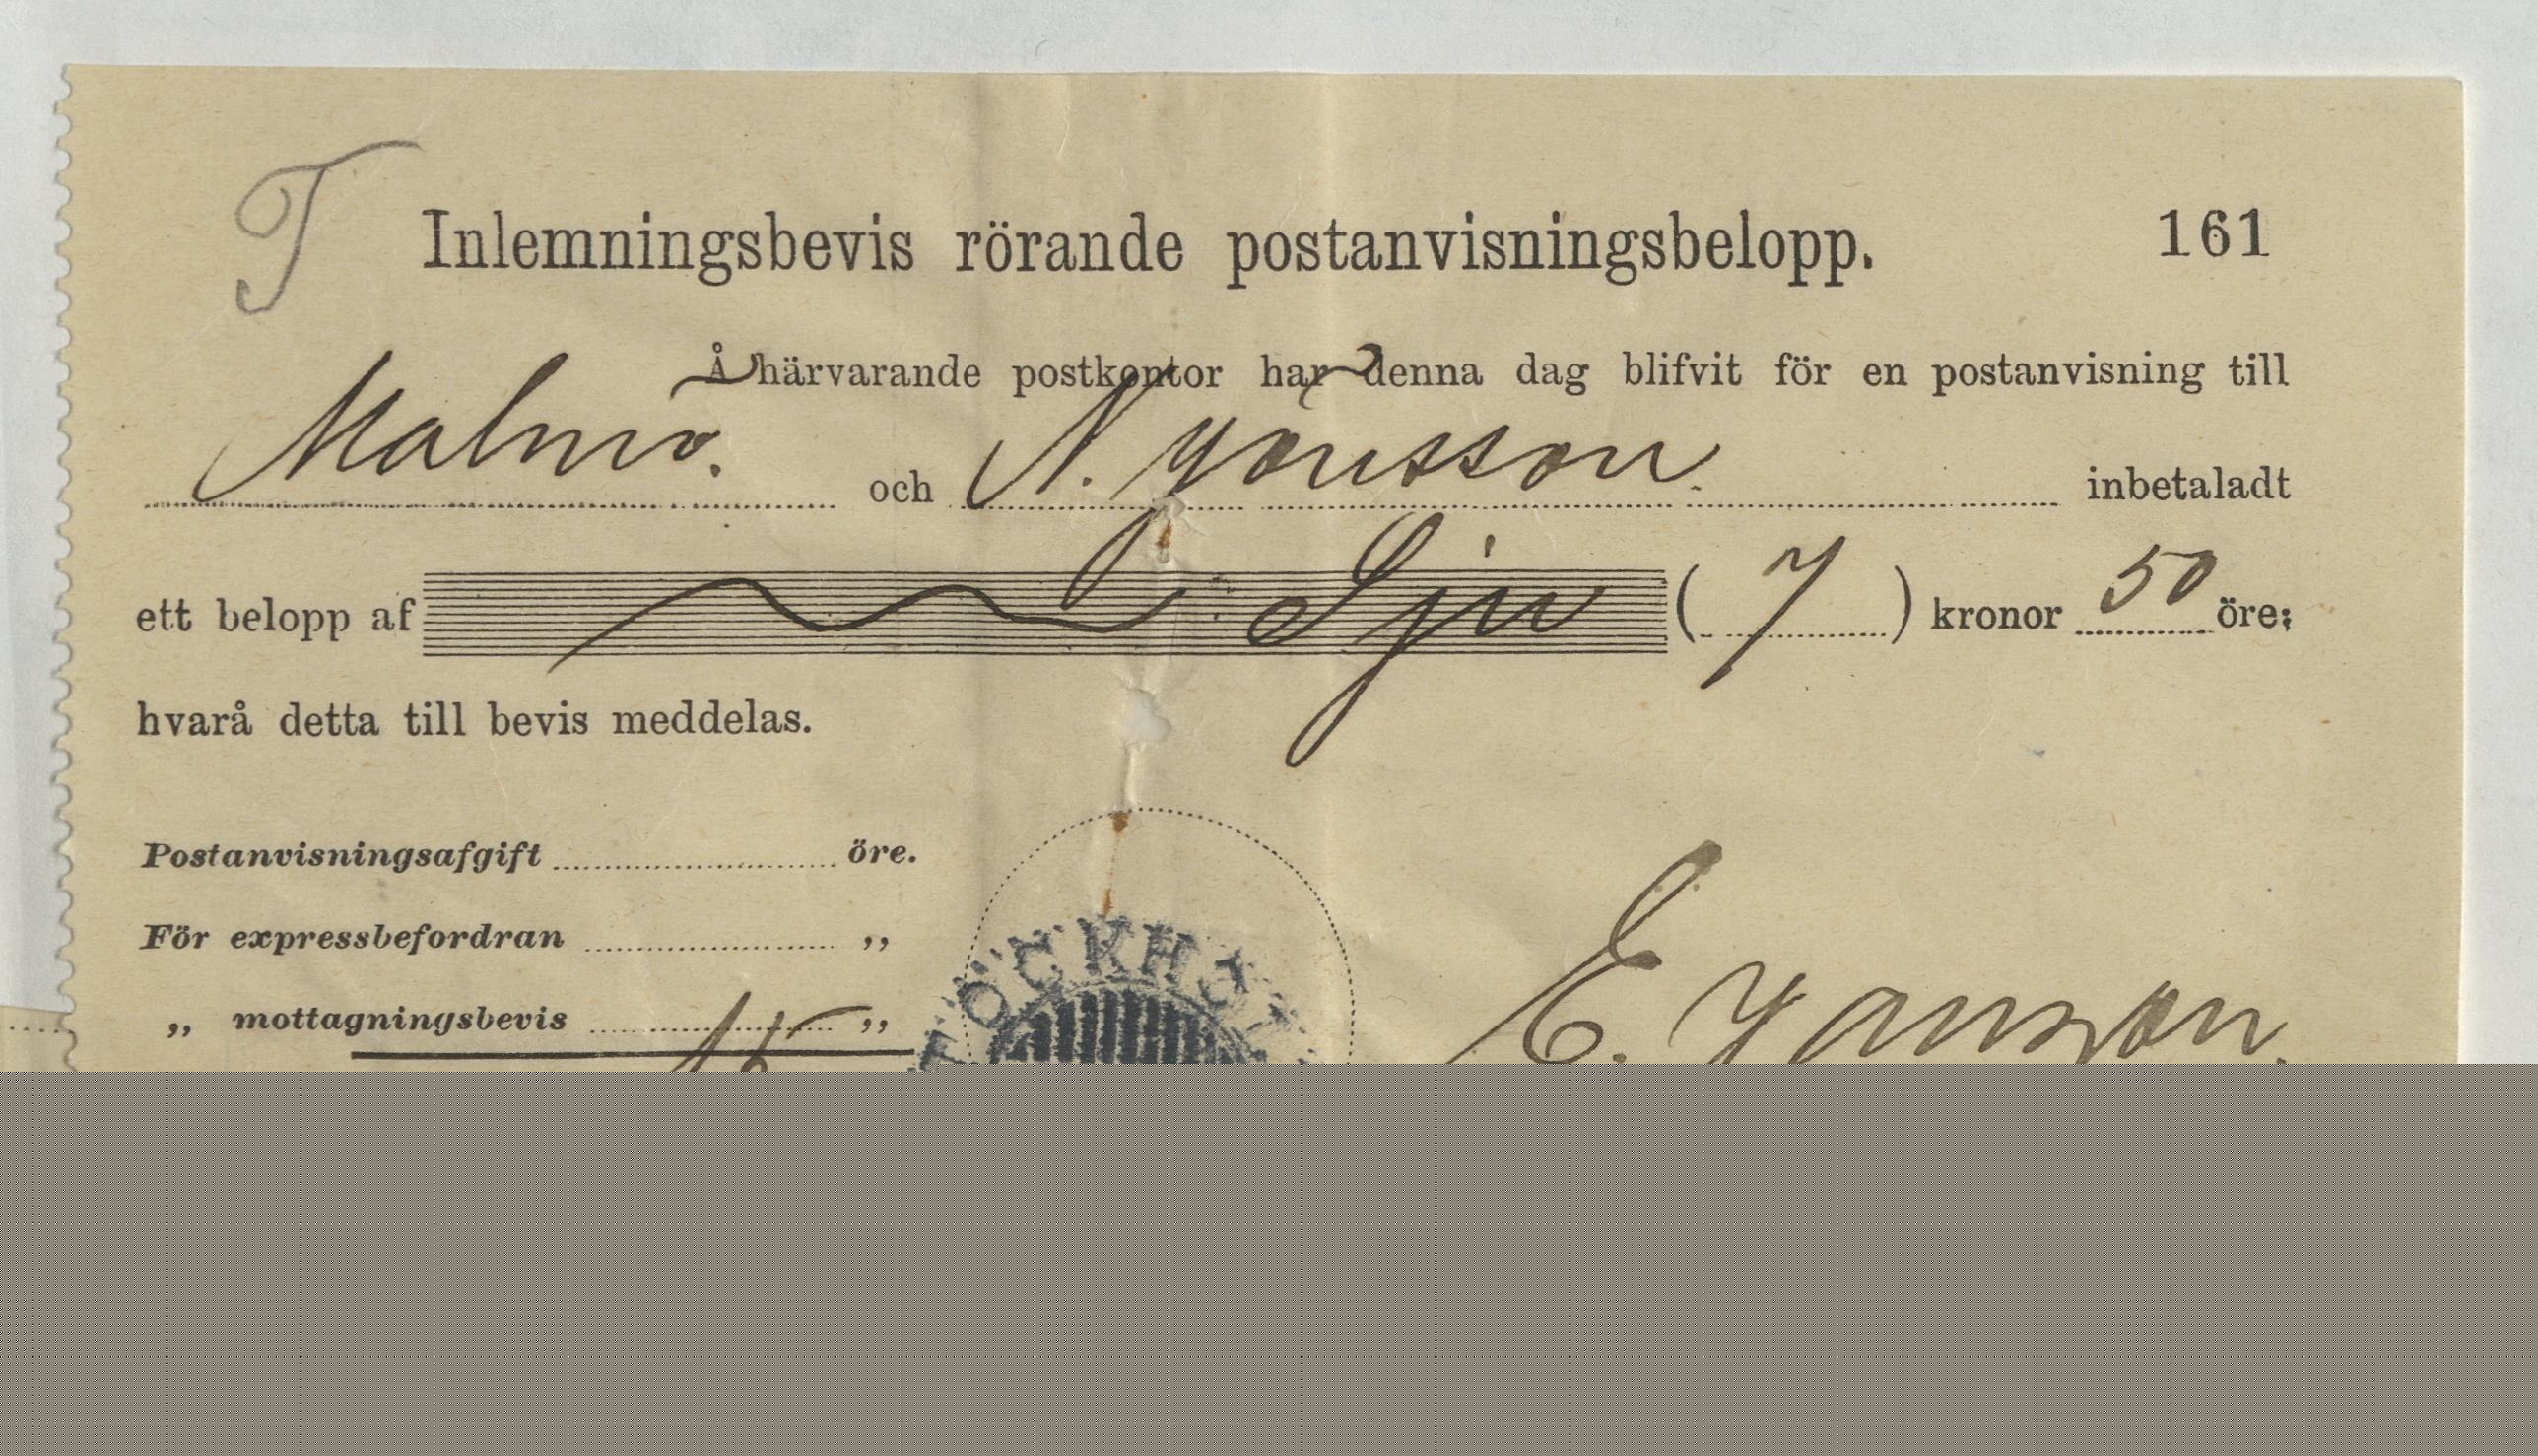 T
Inlemningsbevis rörande postanvisningsbelopp. 161
Å härvarande postkontor har denna dag blifvit för en postanvisning till
Malmö. och N. Jönsson. inbetaladt
ett belopp af Sju ( 7 ) kronor 50 öre;
hvarå detta till bevis meddelas.
Postanvisningsafgift öre.
För expressbefordran „
„ mottagningsbevis „
E. Janson.